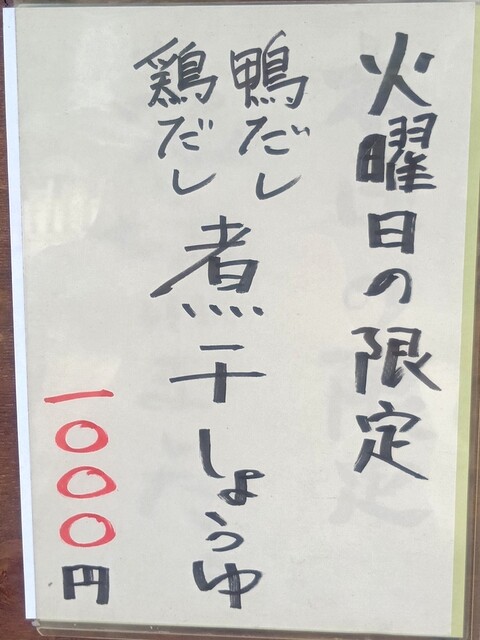 火曜日の限定
鴨だし
鶏だし
煮干しょうゆ
一〇〇〇円